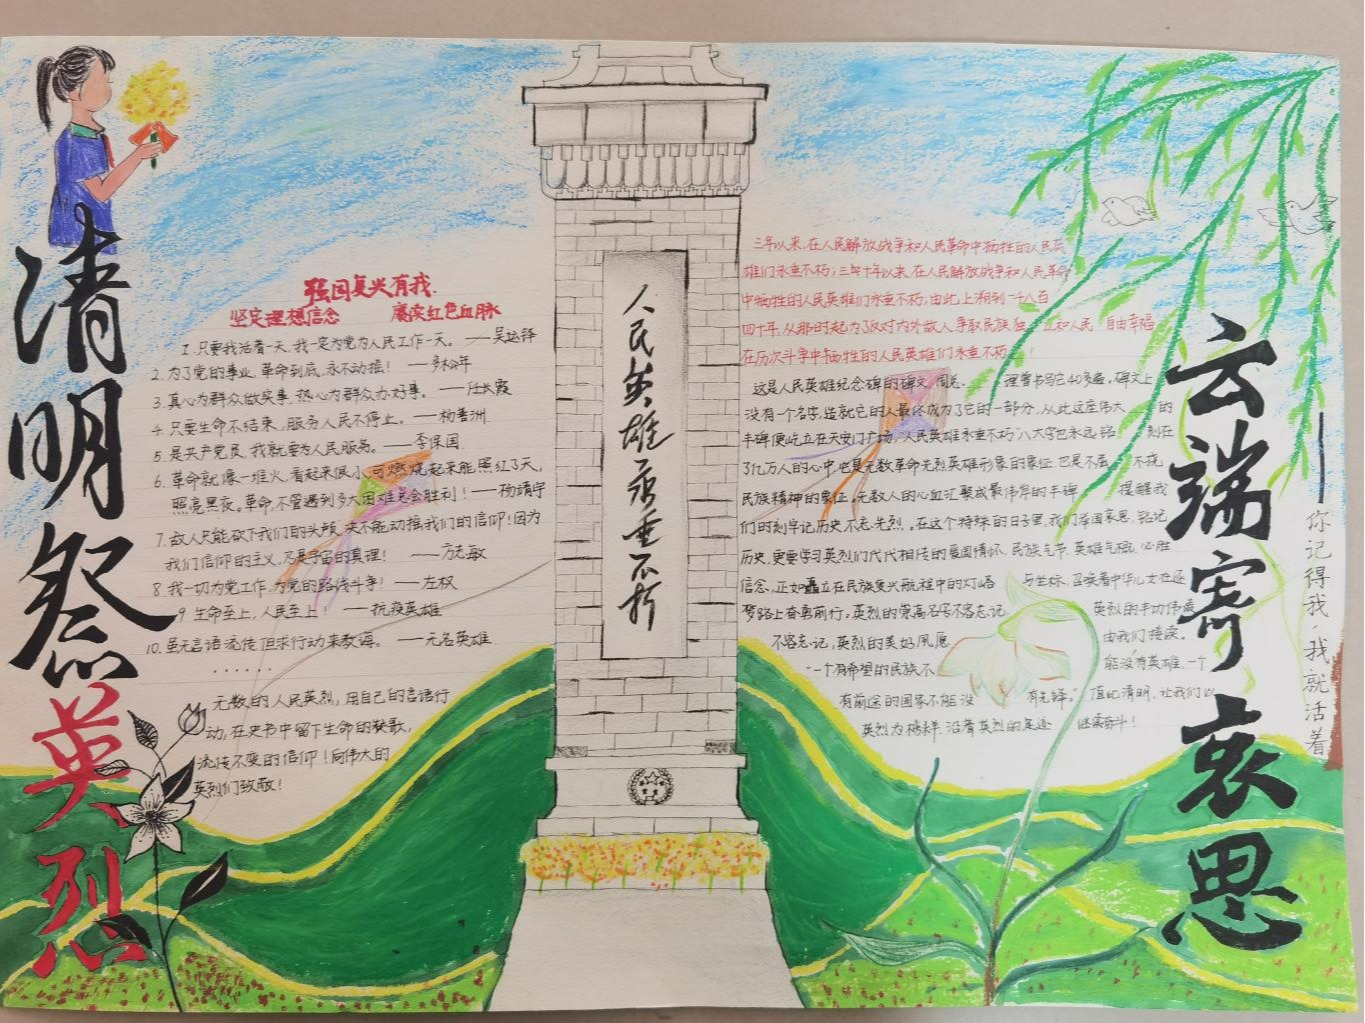 清明祭英烈
强国复兴有我
坚定理想信念 赓续红色血脉
1.只要我活着一天,我一定为党为人民工作一天。——吴运铎
2.为了党的事业,革命到底,永不动摇!——多松年
3.真心为群众做实事,热心为群众办好事。——任长霞
4.只要生命不结束,服务人民不停止。——杨善洲
5.是共产党员,我就要为人民服务。——李保国
6.革命就像一堆火,看起来很小,可燃烧起来能照红了天,
照亮黑夜。革命,不管遇到多大困难总会胜利!——杨靖宇
7.敌人只能砍下我们的头颅,决不能动摇我们的信仰!因为
我们信仰的主义,乃是宇宙的真理!——方志敏
8.我一切为党工作,为党的路线斗争!——左权
9 生命至上,人民至上!——抗疫英雄
10.虽无言语流传,但求行动来教诲。——无名英雄.
......
无数的人民英烈,用自己的言语行
动,在史书中留下生命的
流传不变的信仰!向伟大的
英烈们致敬!
人民英雄永垂不朽
三年以来,在人民解放战争和人民革命中牺牲的人民英
雄们永垂不朽;三十年以来,在人民解放战争和人民革命
中牺牲的人民英雄们永垂不朽;由此上溯到一千八百
四十年,从那时起为了反对内外敌人,争取民族独立和人民自由幸福
在历次斗争中牺牲的人民英雄们永垂不朽!
这是人民英雄纪念碑的碑文,周总理曾书写它40多遍。碑文上
没有一个名字,造就它的人最终成为了它的一部分,从此这座伟大的
丰碑便屹立在天安门广场,"人民英雄永垂不朽"八大字也永远铭刻在
了亿万人的心中,也是无数革命先烈英雄形象的象征,也是不屈不挠
民族精神的象征。无数人的心血汇聚成最伟岸的丰碑 提醒我
们时刻牢记历史,不忘先烈。在这个特殊的日子里,我们举国哀思,铭记
历史,更要学习英烈们代代相传的爱国情怀、民族气节、英雄气概、必胜
信念,正如矗立在民族复兴航程中的灯塔与坐标,召唤着中华儿女在逐
梦路上奋勇前行。英烈的崇高名字不容忘记 英烈的丰功伟绩
不容忘记,英烈的美好夙愿 由我们接续。
"一个有希望的民族不能没有英雄,一个
有前途的国家不能没有先锋。"值此清明,让我们以
英烈为榜样,沿着英烈的足迹继续奋斗!
云端寄哀思
——你记得我,我就活着